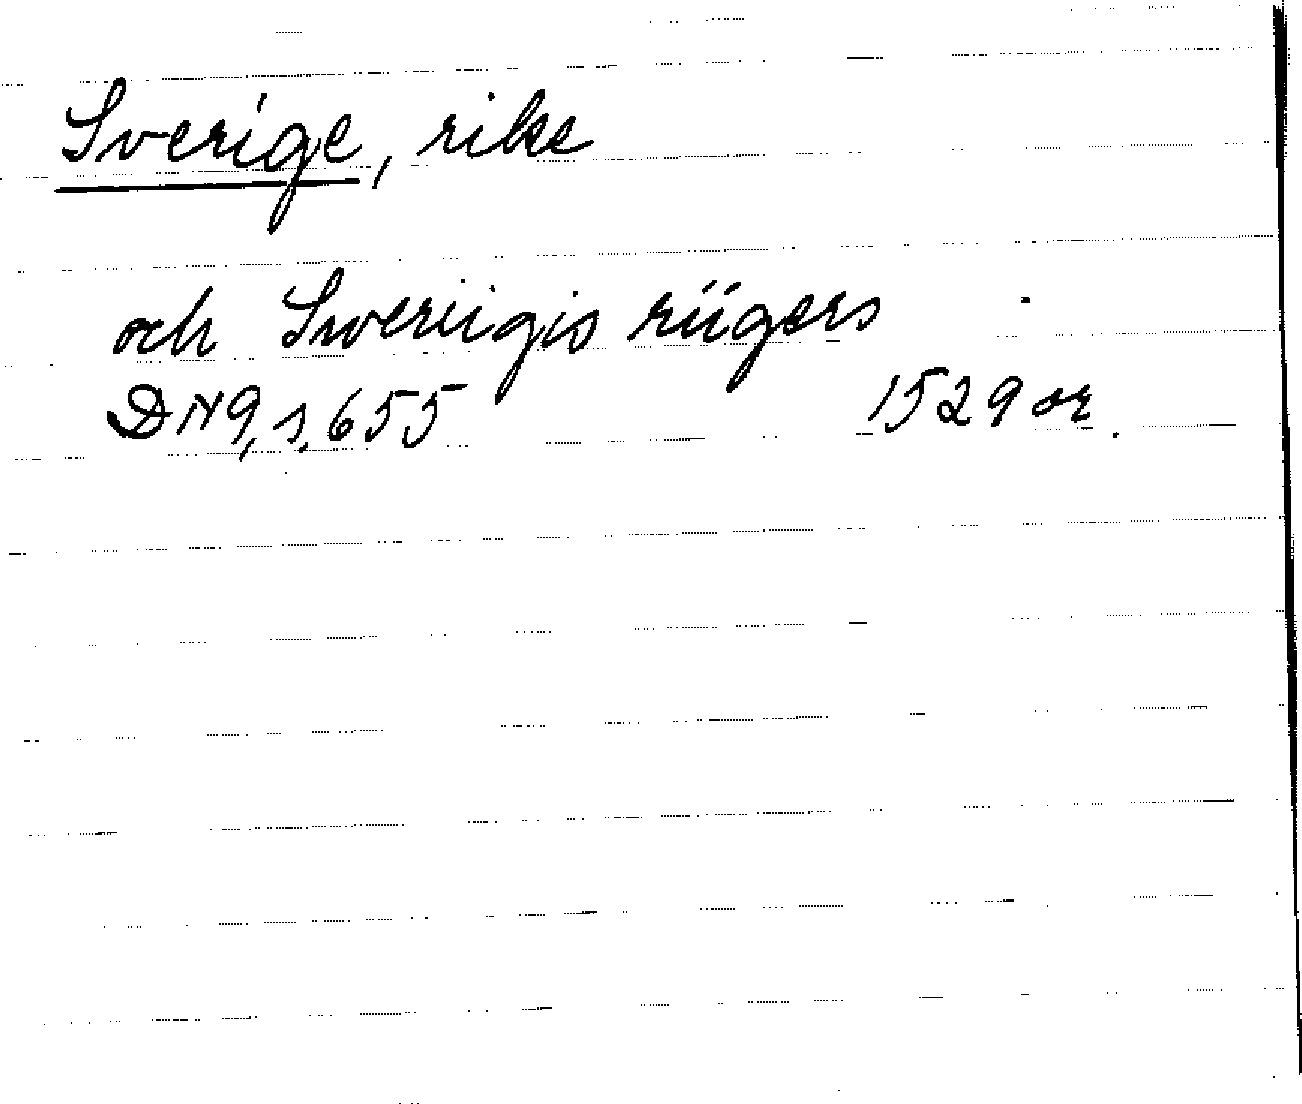 Sverige, rike
och Sweriigis riigers
DN 9, s. 655 1529 or.